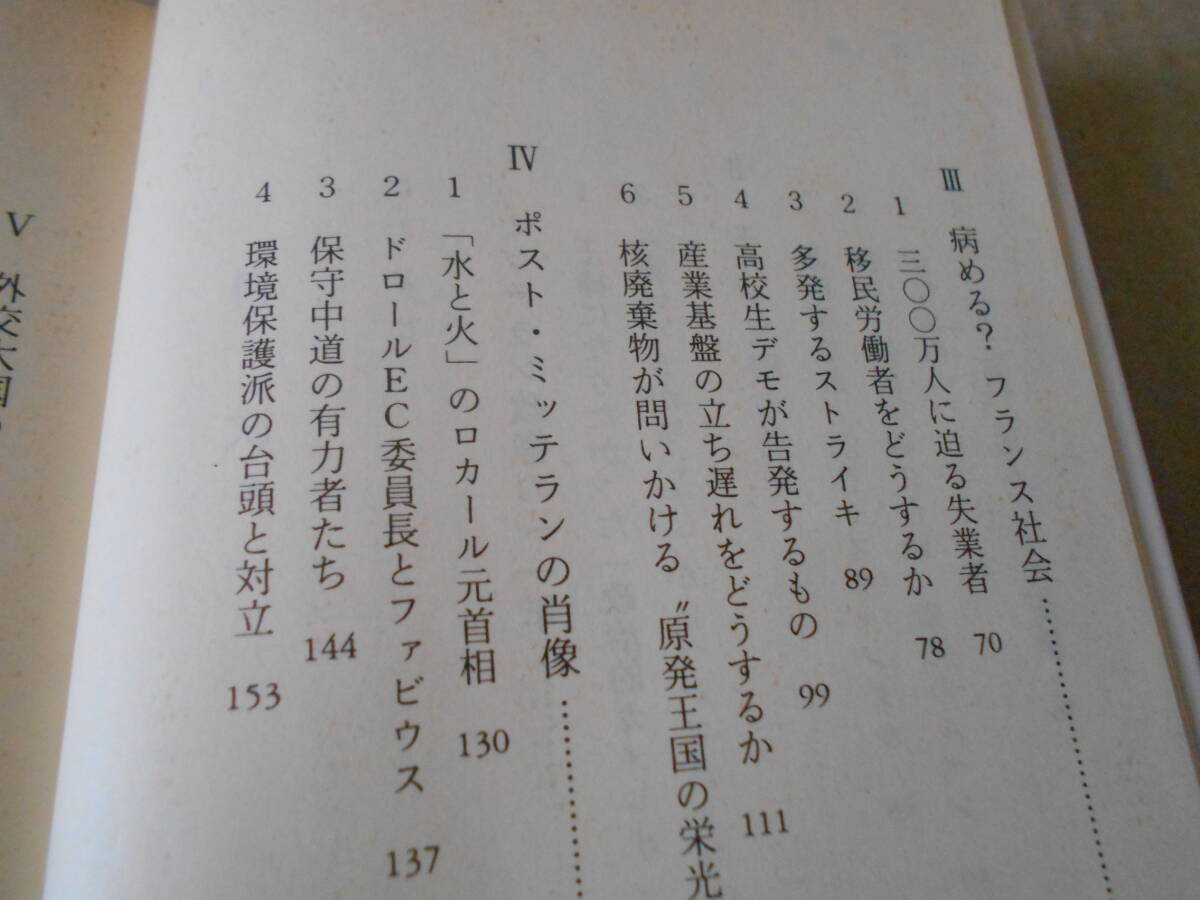 Ⅲ 病める？ フランス社会…………
1 三〇〇万人に迫る失業者 70
2 移民労働者をどうするか 78
3 多発するストライキ 89
4 高校生デモが告発するもの 99
5 産業基盤の立ち遅れをどうするか 111
6 核廃棄物が問いかける〝原発王国の栄光
Ⅳ ポスト・ミッテランの肖像…………
1 「水と火」のロカール元首相 130
2 ドロールEC委員長とファビウス 137
3 保守中道の有力者たち 144
4 環境保護派の台頭と対立 153
Ⅴ 外交大国